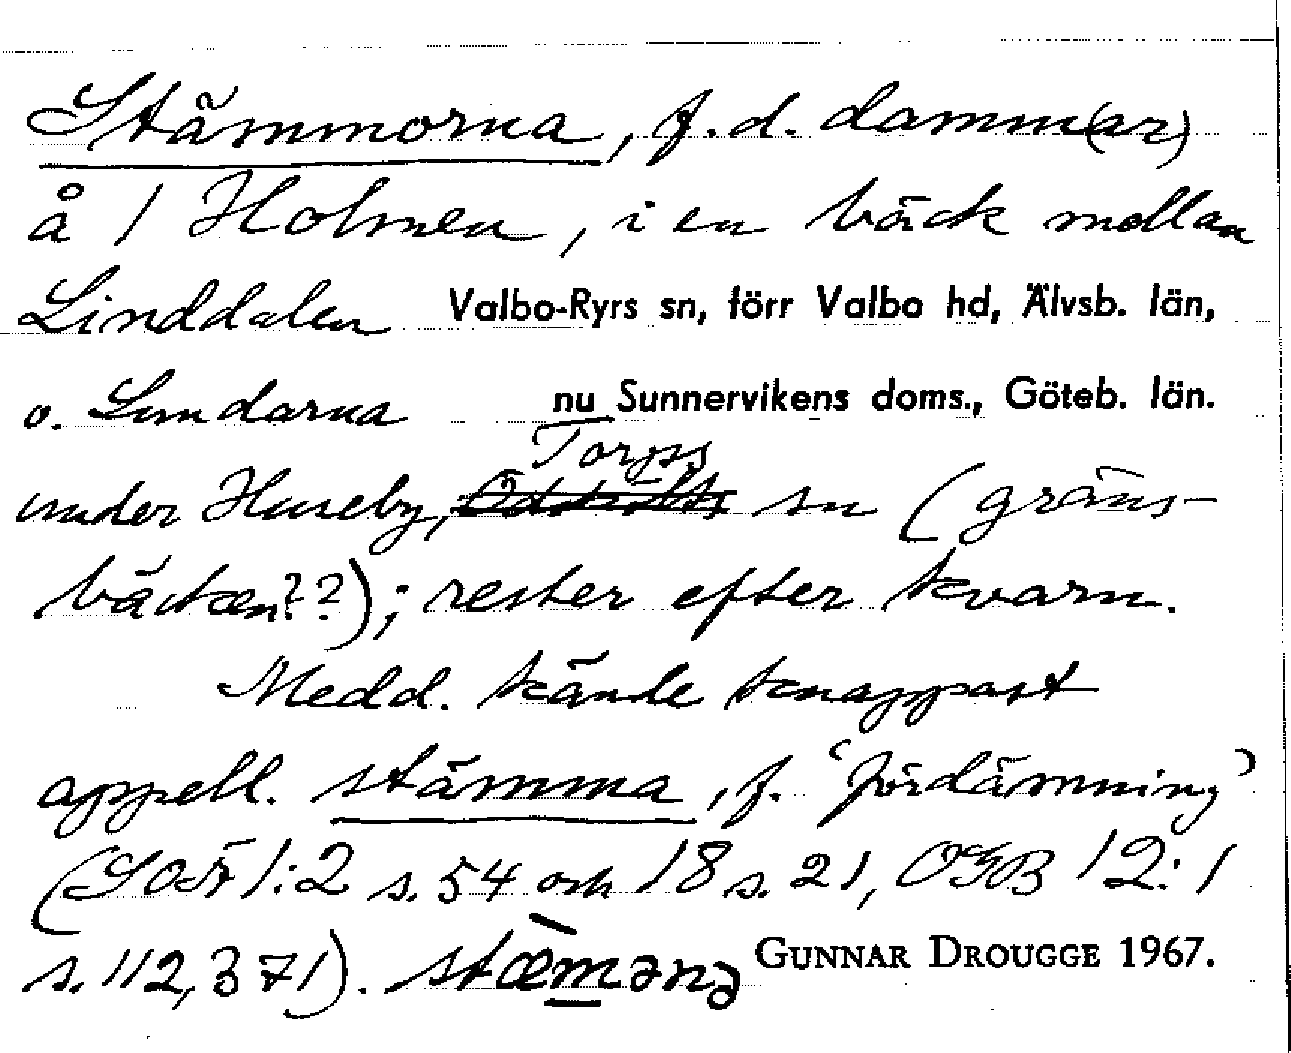 Stämmorna, f.d. damm(ar)
å 1 Holmen, i en bäck mellan
Linddalen Valbo-Ryrs sn, förr Valbo hd, Älvsb. län,
o. Lundarna nu Sunnervikens doms., Göteb. län.
Torps
under Huseby, sn (gräns-
bäcken??); rester efter kvarn.
Medd. kände knappast
appell. stämma, f. 'fördämning'
(SOÄ 1:2 s. 54 och 18 s. 21, OGB 12:1
s. 112, 371). stæmənə GUNNAR DROUGGE 1967.